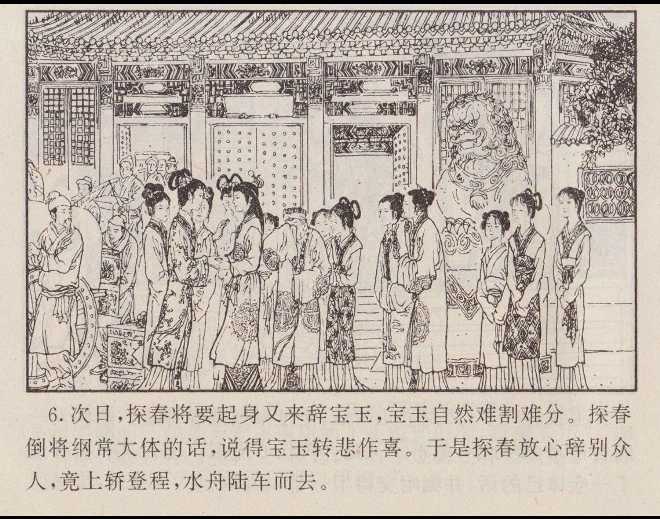 6.次日,探春将要起身又来辞宝玉,宝玉自然难割难分。探春
倒将纲常大体的话,说得宝玉转悲作喜。于是探春放心辞别众
人,竟上轿登程,水舟陆车而去。